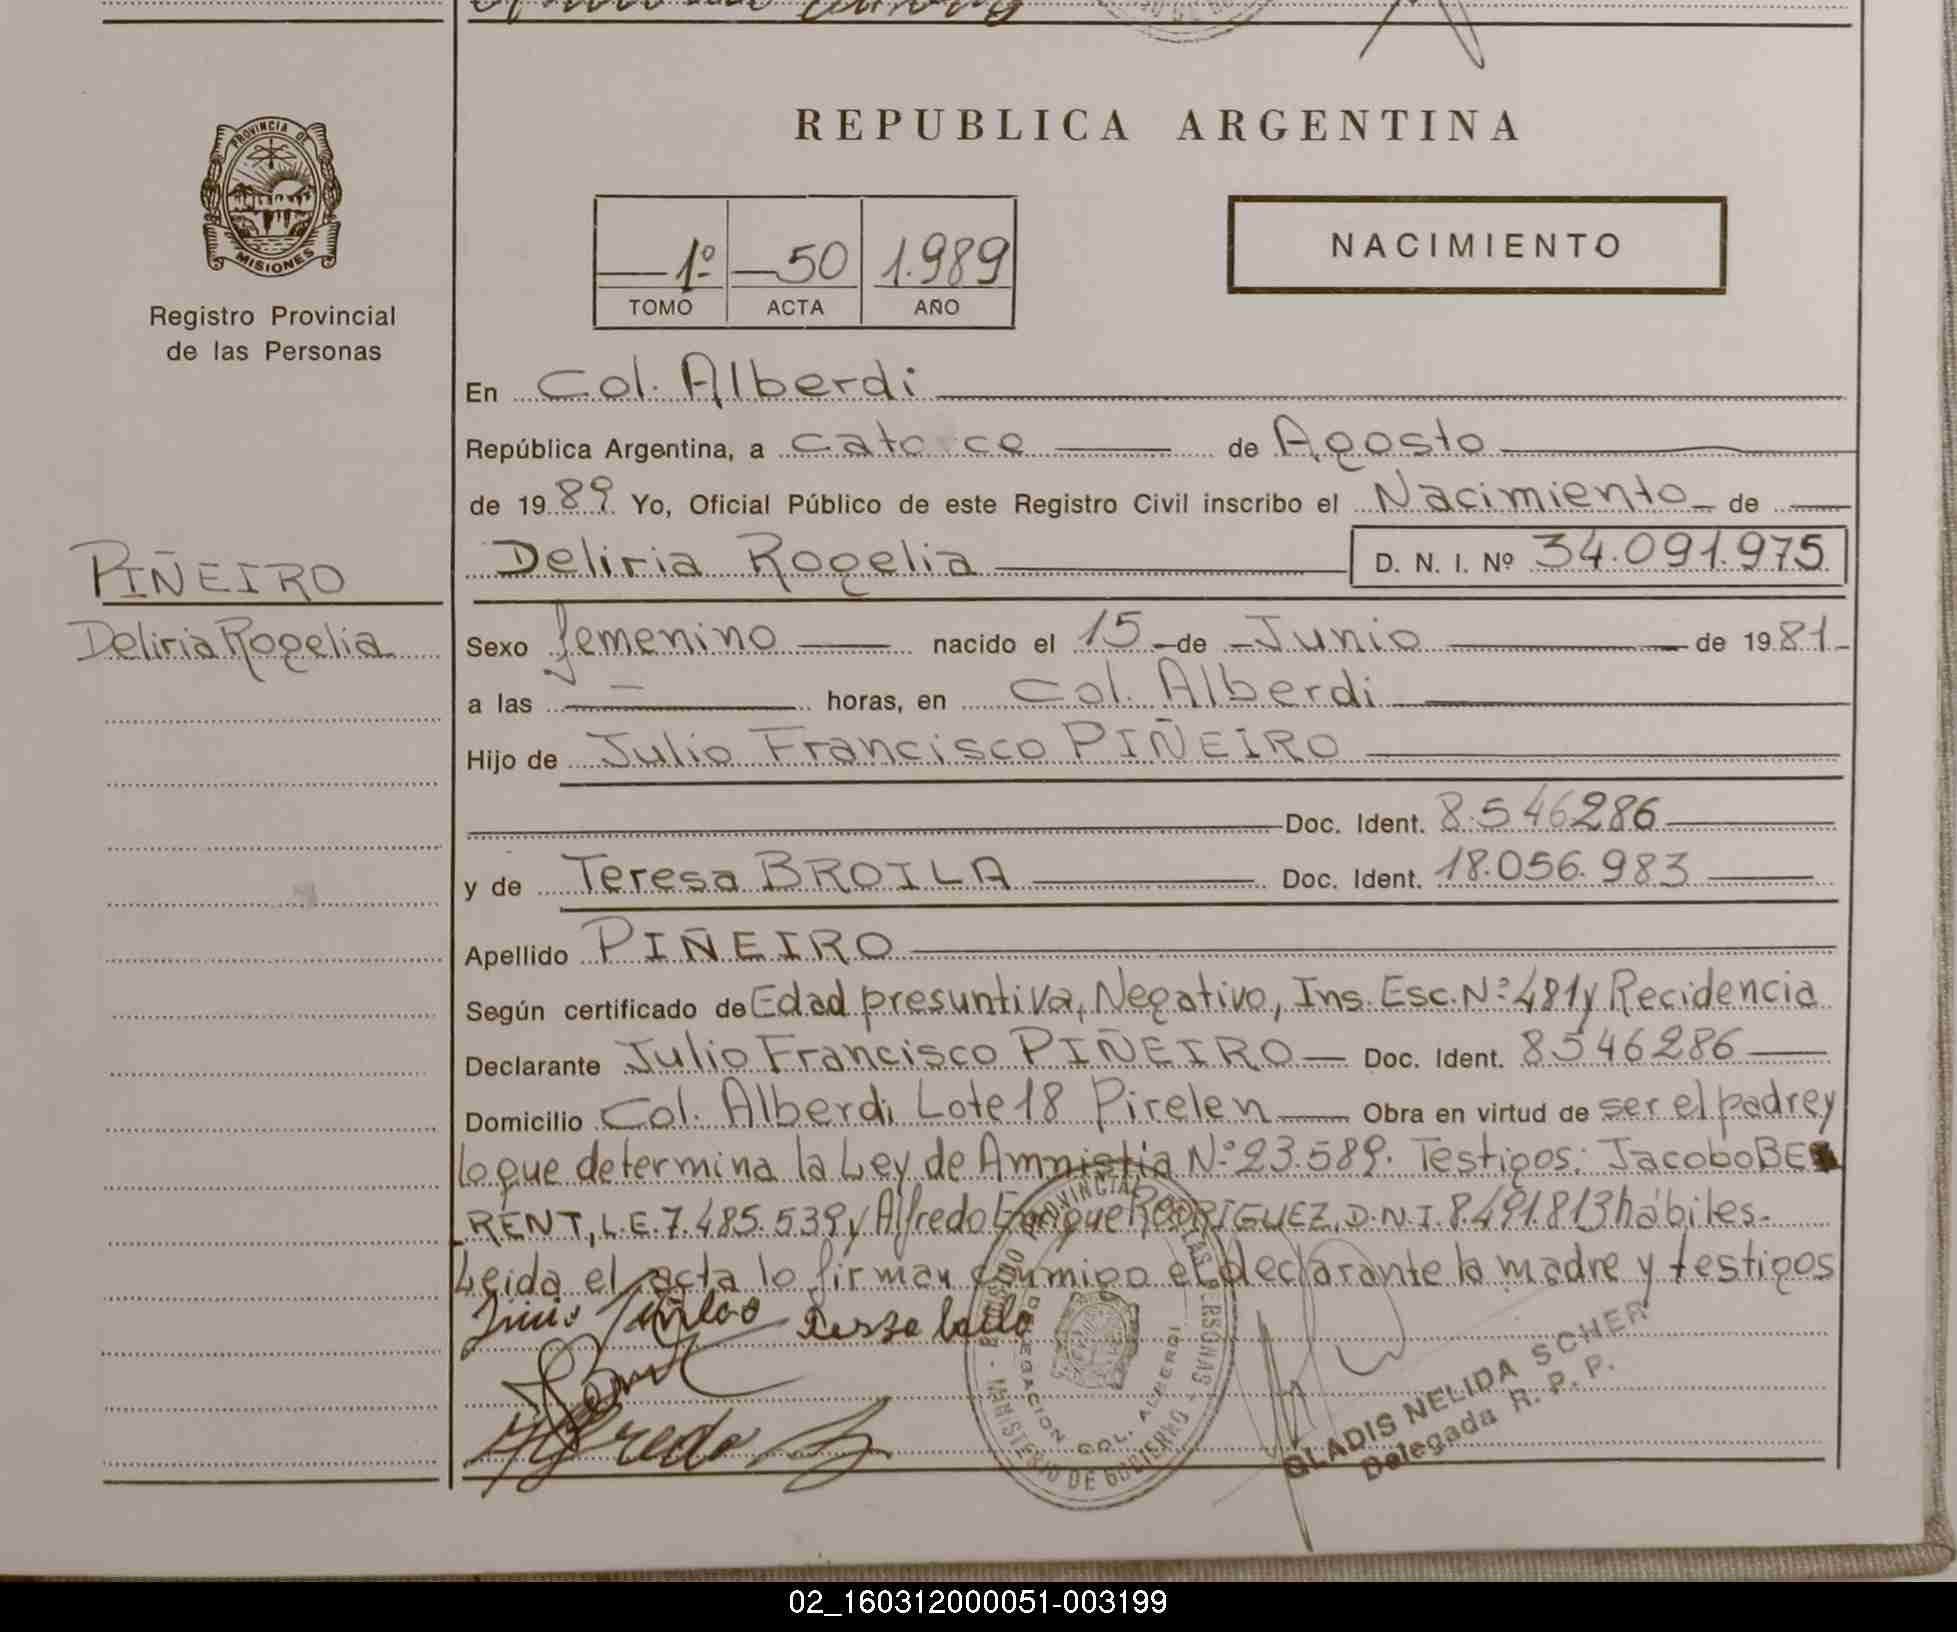 REPUBLICA ARGENTINA
PROVINCIA DE
MISIONES
Registro Provincial
de las Personas
1º 50 1.989
TOMO ACTA AÑO
NACIMIENTO
En Col. Alberdi
República Argentina, a catorce de Agosto
de 1989. Yo, Oficial Público de este Registro Civil inscribo el Nacimiento de
Deliria Rogelia D. N. I. Nº 34.091.975
PIÑEIRO
Deliria Rogelia
Sexo femenino nacido el 15 de Junio de 1981
a las — horas, en Col. Alberdi
Hijo de Julio Francisco PIÑEIRO
Doc. Ident. 8.546286
y de Teresa BROILA Doc. Ident. 18.056.983
Apellido PIÑEIRO
Según certificado de Edad presuntiva, Negativo, Ins. Esc. Nº 481 y Recidencia
Declarante Julio Francisco PIÑEIRO Doc. Ident. 8546286
Domicilio Col. Alberdi Lote 18 Pirelen Obra en virtud de ser el padre y
lo que determina la Ley de Amnistia Nº 23.589. Testigos: Jacobo BE
RENT, L.E. 7.485.539 y Alfredo Enrique RODRIGUEZ, D.N.I. 8.491.813 hábiles.
Leida el acta lo firman conmigo el declarante la madre y testigos
Alfredo
REGISTRO PROVINCIAL DE LAS PERSONAS
DELEGACION COL. ALBERDI
MINISTERIO DE GOBIERNO
GLADIS NELIDA SCHER
Delegada R. P. P.
02_160312000051-003199